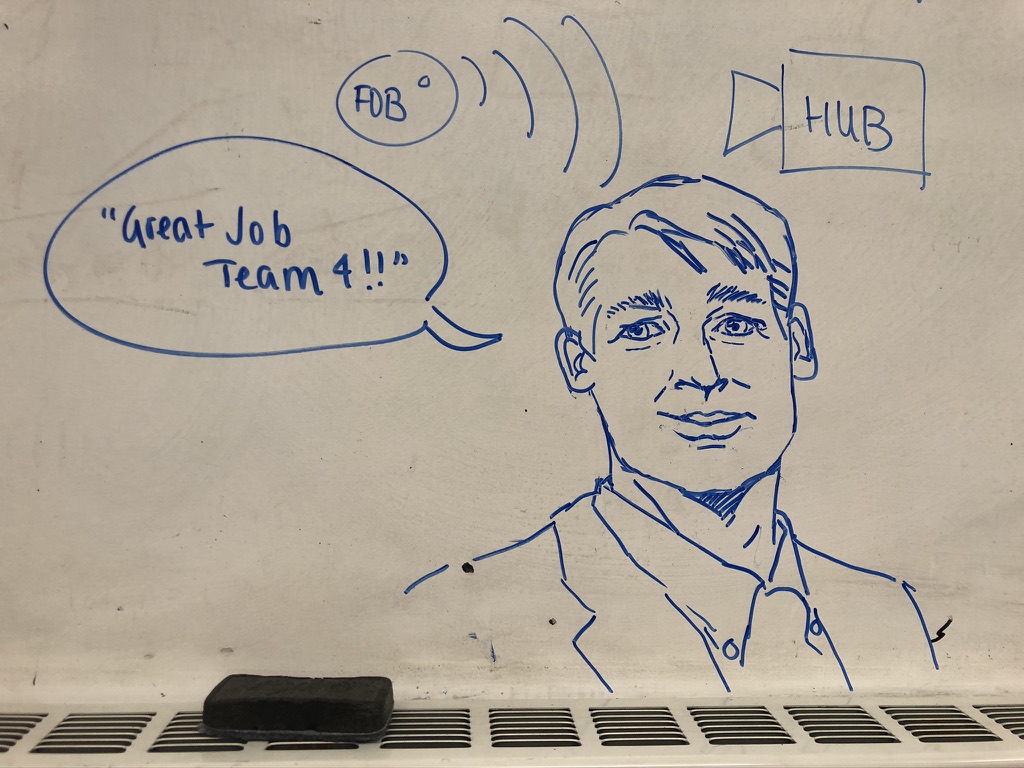 FOB
HUB
"Great Job
Team 4!!"